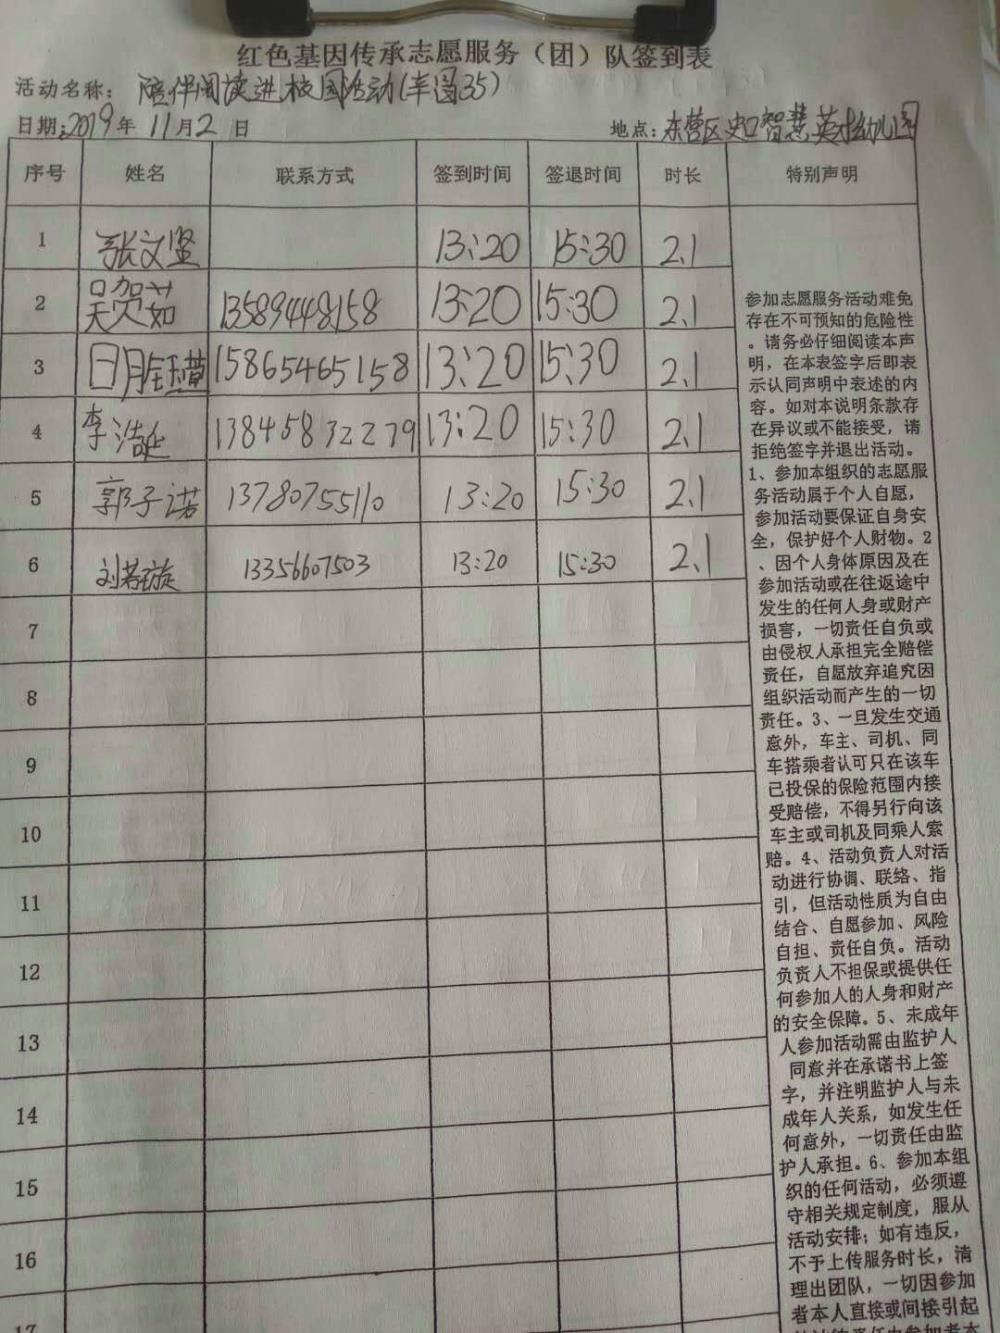 红色基因传承志愿服务（团）队签到表
活动名称：陪伴阅读进校园活动(丰图35)
日期:2019年 11月2 日 地点:东营区史口智慧英才幼儿园
序号 姓名 联系方式 签到时间 签退时间 时长 特别声明
1 张文坚 13:20 15:30 2.1
2 吴贺茹 13589448158 13:20 15:30 2.1
3 15865465158 13:20 15:30 2.1
4 李浩延 13845832279 13:20 15:30 2.1
5 郭子诺 13780755110 13:20 15:30 2.1
6 刘若璇 13356607503 13:20 15:30 2.1
7
8
9
10
11
12
13
14
15
16
17
参加志愿服务活动难免
存在不可预知的危险性
。请务必仔细阅读本声
明，在本表签字后即表
示认同声明中表述的内
容。如对本说明条款存
在异议或不能接受，请
拒绝签字并退出活动。
1、参加本组织的志愿服
务活动属于个人自愿，
参加活动要保证自身安
全，保护好个人财物。2
、因个人身体原因及在
参加活动或在往返途中
发生的任何人身或财产
损害，一切责任自负或
由侵权人承担完全赔偿
责任，自愿放弃追究因
组织活动而产生的一切
责任。3、一旦发生交通
意外，车主、司机、同
车搭乘者认可只在该车
已投保的保险范围内接
受赔偿，不得另行向该
车主或司机及同乘人索
赔。4、活动负责人对活
动进行协调、联络、指
引，但活动性质为自由
结合、自愿参加、风险
自担、责任自负。活动
负责人不担保或提供任
何参加人的人身和财产
的安全保障。5、未成年
人参加活动需由监护人
同意并在承诺书上签
字，并注明监护人与未
成年人关系，如发生任
何意外，一切责任由监
护人承担。6、参加本组
织的任何活动，必须遵
守相关规定制度，服从
活动安排；如有违反，
不予上传服务时长，清
理出团队，一切因参加
者本人直接或间接引起